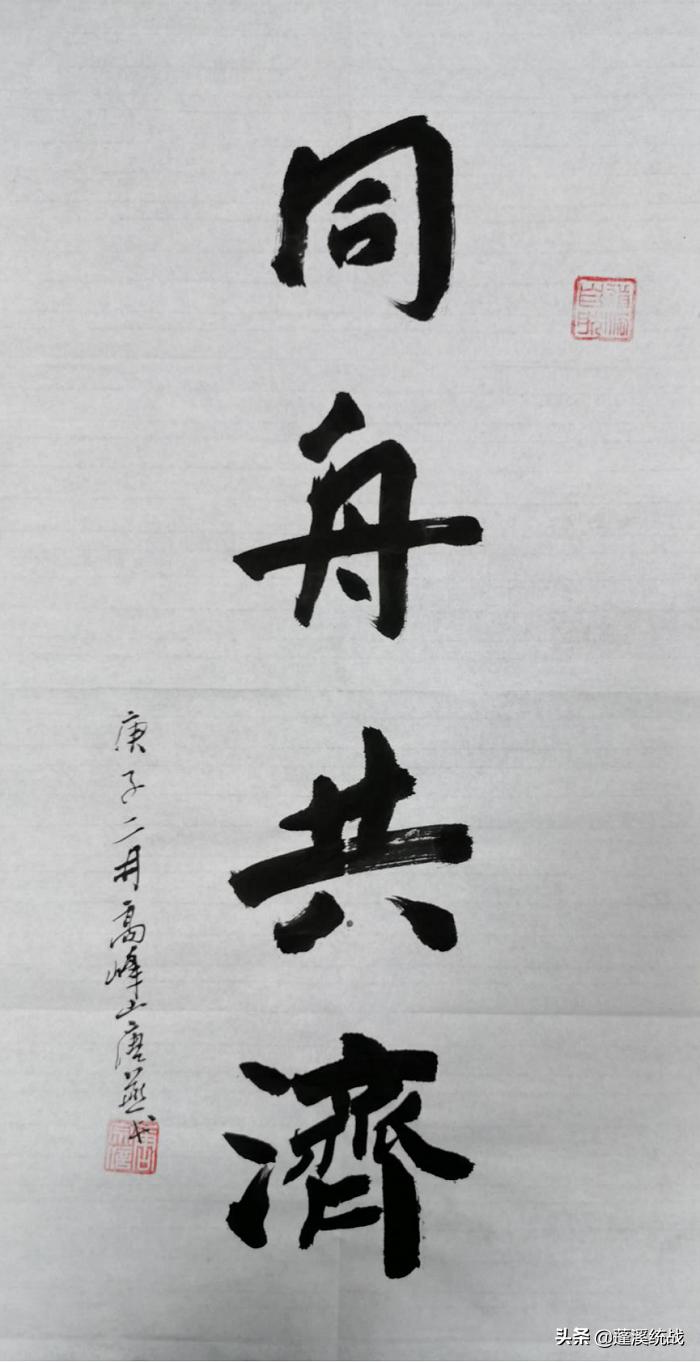 同舟共濟
庚子二月高峰山唐燕书
头条 @蓬溪统战